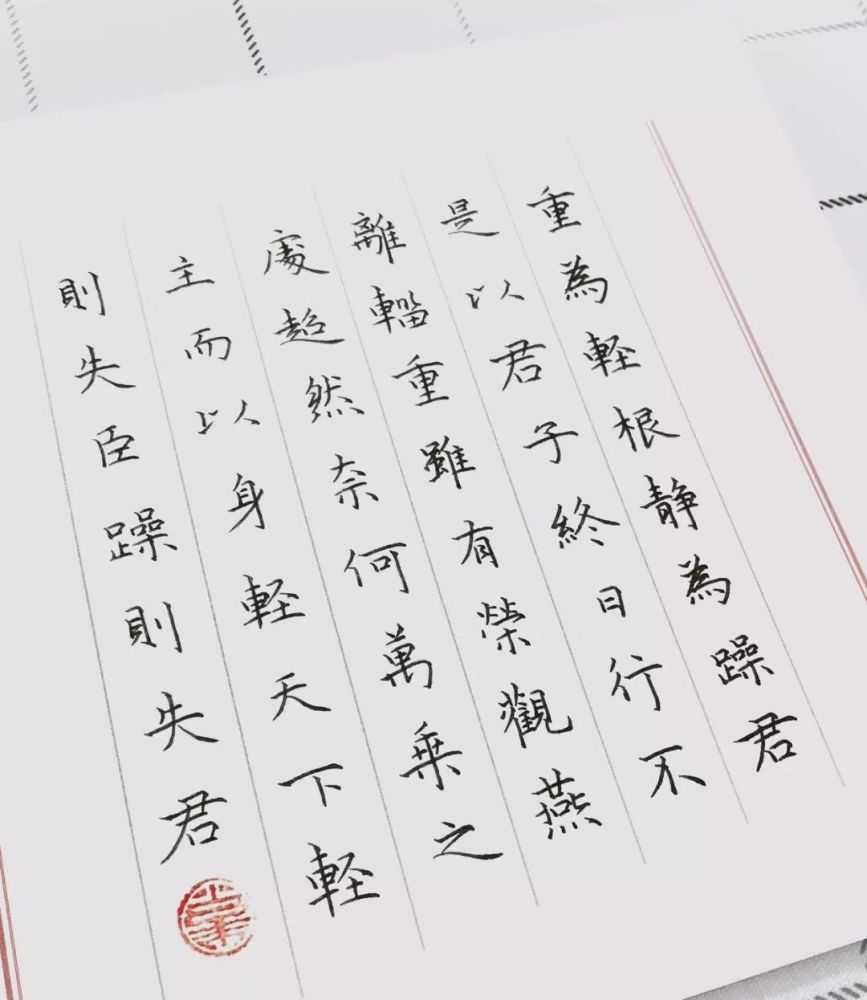 重為軽根静為躁君
是以君子終日行不
離輜重雖有榮觀燕
處超然奈何萬乗之
主而以身軽天下軽
則失臣躁則失君